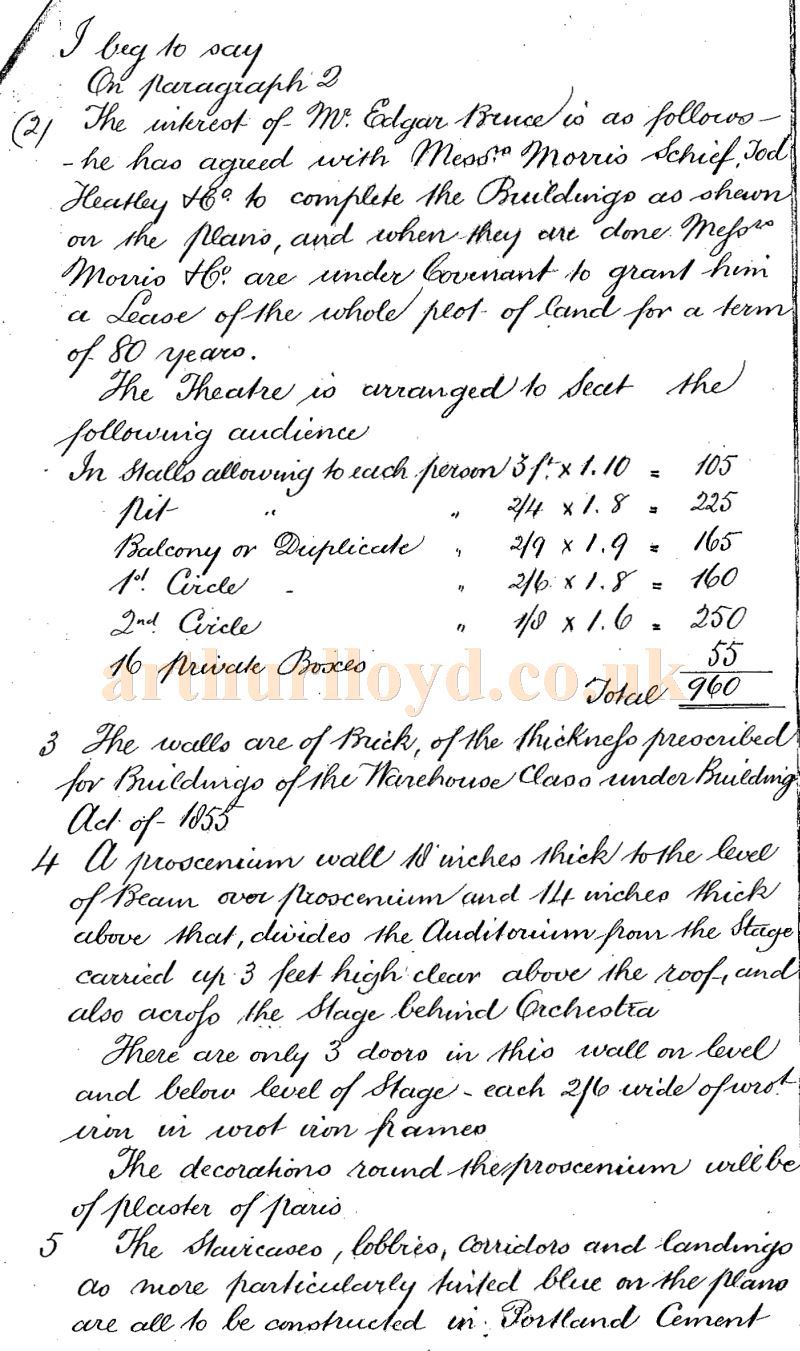 I beg to say
On paragraph 2
(2) The interest of Mr. Edgar Bruce is as follows -
- he has agreed with Messrs Morris Schief, Tod
Heatley & Co. to complete the Buildings as shewn
on the plans, and when they are done Messrs
Morris & Co. are under Covenant to grant him
a Lease of the whole plot of land for a term
of 80 years.
The Theatre is arranged to seat the
following audience
In Stalls allowing to each person 3 ft. x 1.10 = 105
Pit " " 2/4 x 1.8 = 225
Balcony or Duplicate " 2/9 x 1.9 = 165
1st. Circle - " 2/6 x 1.8 = 160
2nd. Circle " 1/8 x 1.6 = 250
16 Private Boxes 55
arthurlloyd.co.uk
Total 960
3 The walls are of Brick, of the thickness prescribed
for Buildings of the Warehouse Class under Building
Act of 1855
4 A proscenium wall 18 inches thick to the level
of Beam over proscenium and 14 inches thick
above that, divides the Auditorium from the Stage
carried up 3 feet high clear above the roof, and
also across the Stage behind Orchestra
There are only 3 doors in this wall on level
and below level of Stage - each 2/6 wide of wrot
iron in wrot iron frames
The decorations round the proscenium will be
of plaster of paris
5 The Staircases, lobbies, corridors and landings
as more particularly tinted blue on the plans
are all to be constructed in Portland Cement